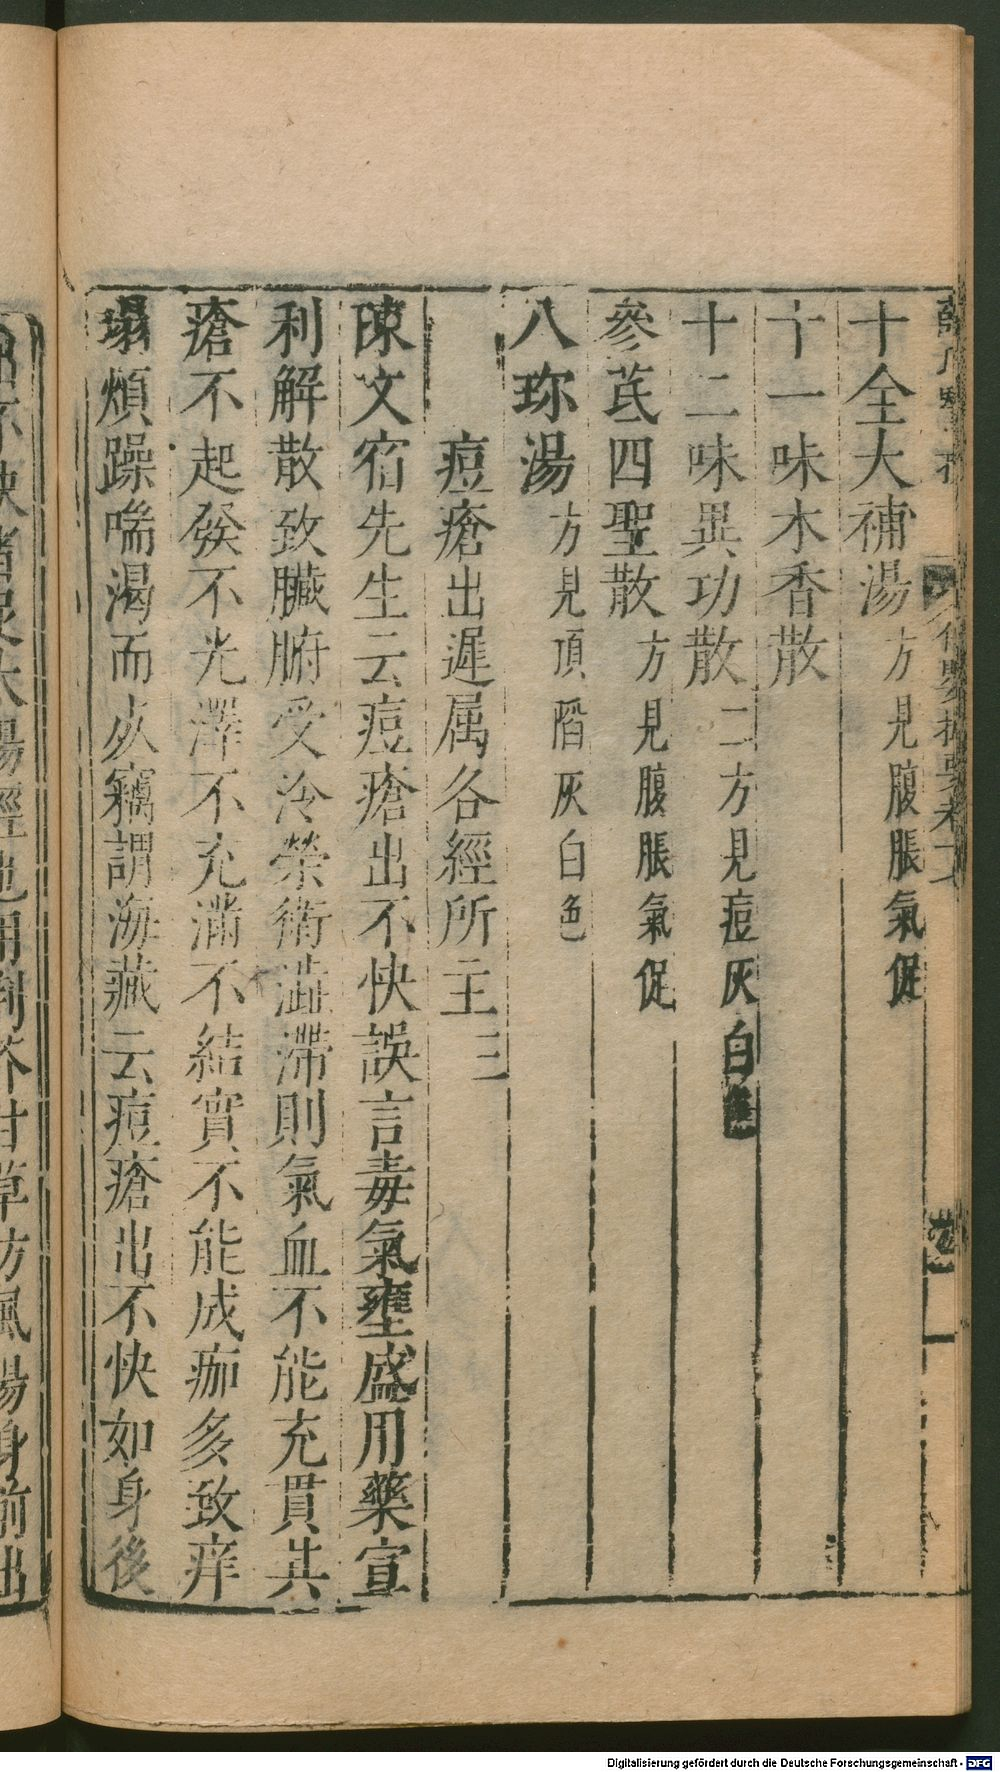 十全大補湯方見腹脹氣促
十一味木香散
十二味異功散二方見痘灰白色
參芪四聖散方見腹脹氣促
八珎湯方見頂陷灰白色
痘瘡出遲属各經所主三
陳文宿先生云痘瘡出不快誤言毒氣壅盛用藥宣
利解散致臟腑受冷榮衛澁滯則氣血不能充貫其
瘡不起發不光澤不充滿不結實不能成痂多致痒
塌煩躁喘渴而㱱竊謂海藏云痘瘡出不快如身後
出不快者足太陽經也用荆芥甘草防風湯身前出
Digitalisierung gefördert durch die Deutsche Forschungsgemeinschaft - DFG